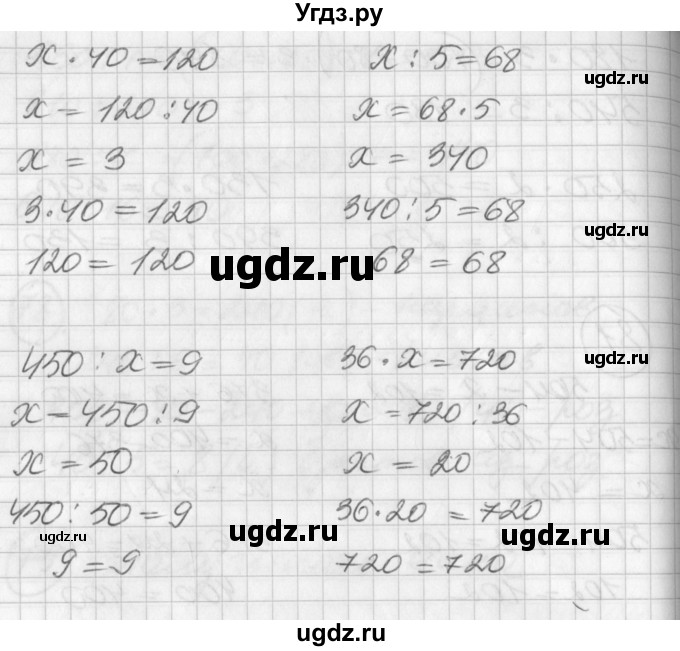 Угдз.ру
x · 40 = 120
x = 120 : 40
x = 3
3 · 40 = 120
120 = 120
x : 5 = 68
x = 68 · 5
x = 340
340 : 5 = 68
68 = 68
450 : x = 9
x = 450 : 9
x = 50
450 : 50 = 9
9 = 9
36 · x = 720
x = 720 : 36
x = 20
36 · 20 = 720
720 = 720
ugdz.ru
ugdz.ru
ugdz.ru
ugdz.ru
ugdz.ru
ugdz.ru
ugdz.ru
ugdz.ru
ugdz.ru